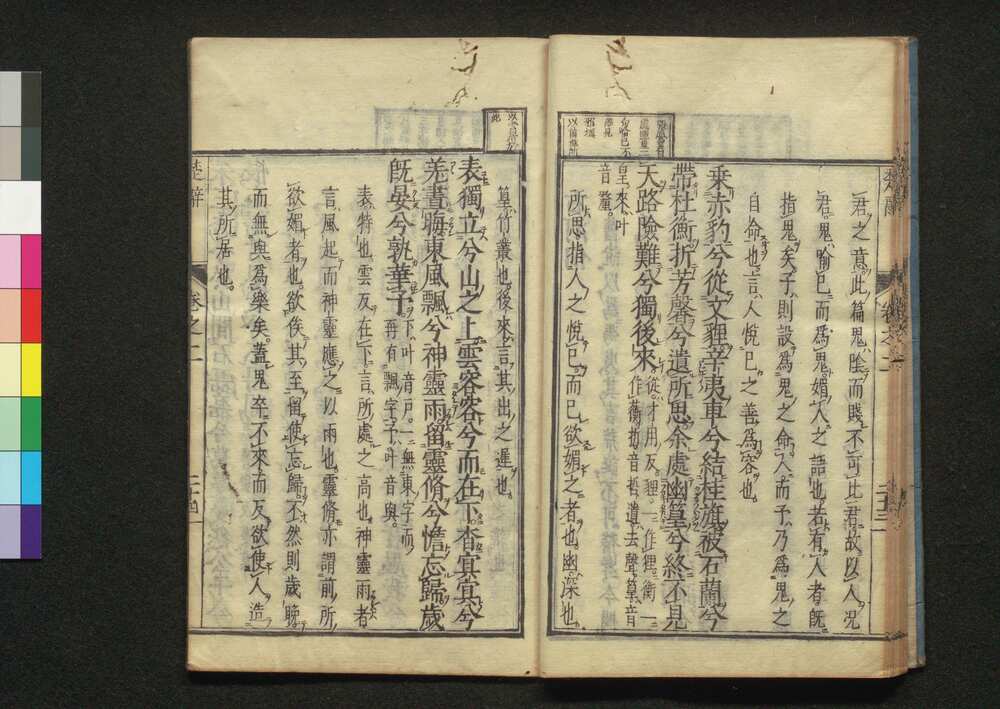 君之意。此篇鬼陰而賤、不可比君。故以人況
君。鬼喩己、而爲鬼媚人之語也。若有人者、既
指鬼矣。子則設爲鬼之命人、而予乃爲鬼之
自命也。言人悅己之善爲容也。
乘赤豹兮從文貍辛夷車兮結桂旗被石蘭兮
帶杜衡折芳馨兮遺所思余處幽篁兮終不見
天路險難兮獨後來 從、才用反。貍、一作狸。衡、一作蘅。折、音哲。遺、去聲。篁、音
皇。來、叶音釐。
所思、指人之悅己、而己欲媚之者也。幽、深也。
篁、竹叢也。後來、言其出之遲也。
表獨立兮山之上雲容容兮而在下杳冥冥兮
羌晝晦東風飄兮神靈雨留靈脩兮憺忘歸歲
既晏兮孰華予 下、叶音戶。一無東字、而再有飄字。予、叶音與。
表、特也。雲反在下、言所處之高也。神靈雨者、
言風起而神靈應之以雨也。靈脩、亦謂前所
欲媚者也。欲俟其至、留使忘歸、不然則歲晚
而無與爲樂矣。蓋鬼卒不來、而反欲使人造
其所居也。
楚辭 卷之二